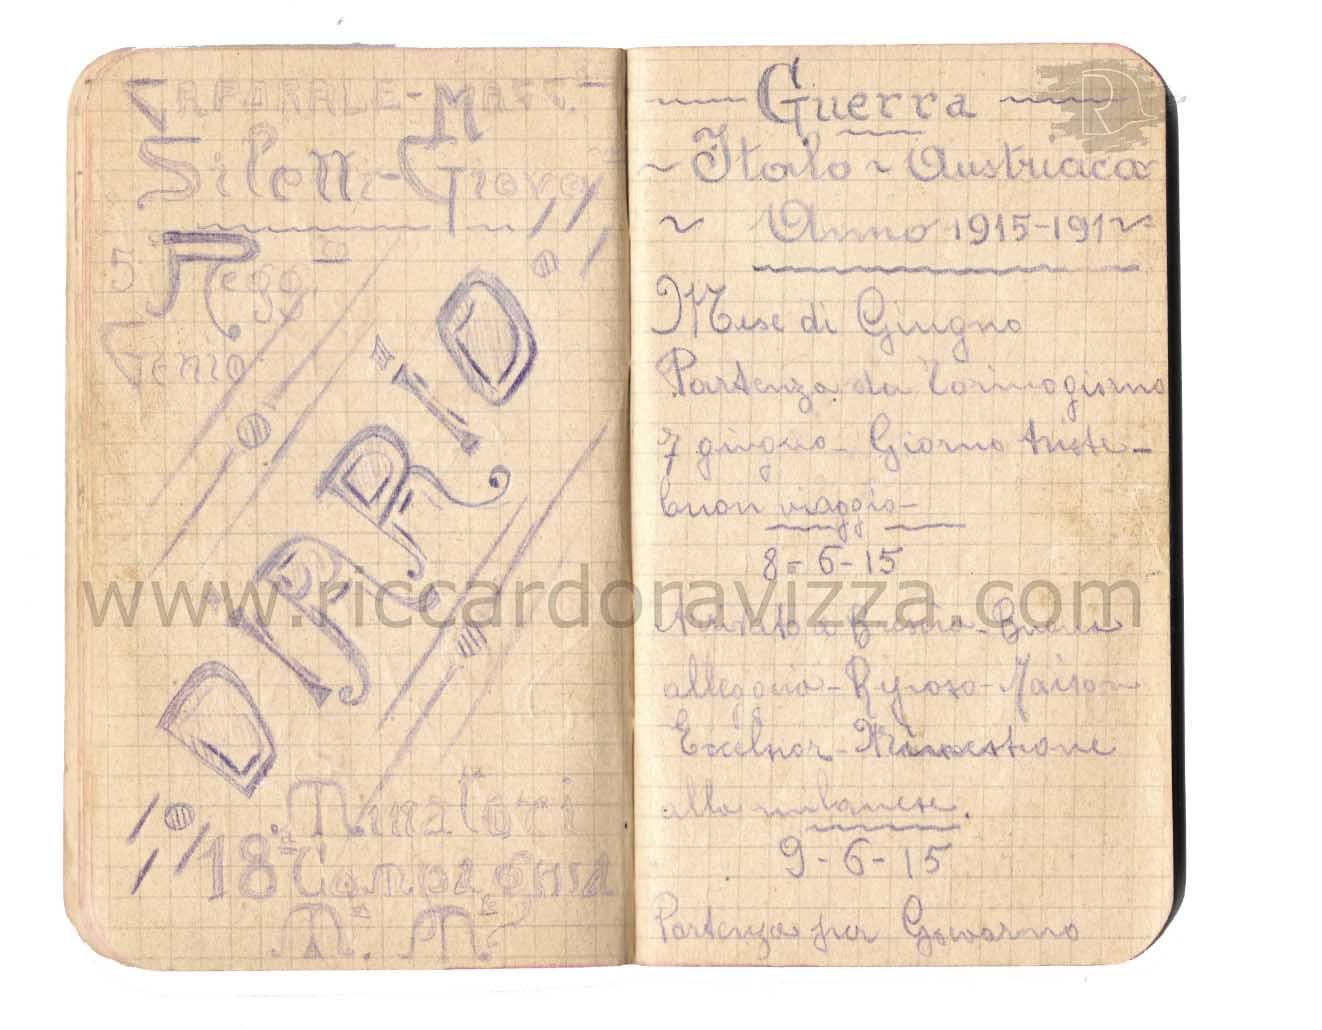 CAPORALE-MAGG.
Siletti-Giova
5° Regg.
Genio
DIARIO
Minatori
18ª Compagnia
M. M.
Guerra
Italo ~ Austriaca
Anno 1915-191
Mese di Giugno
Partenza da Torino giorno
7 giugno - Giorno triste -
buon viaggio -
8-6-15
Arrivato a Brescia -
alloggio - Riposo - Maison
Excelsior -
alla milanese.
9-6-15
Partenza per Gavarno
www.riccardoravizza.com
R